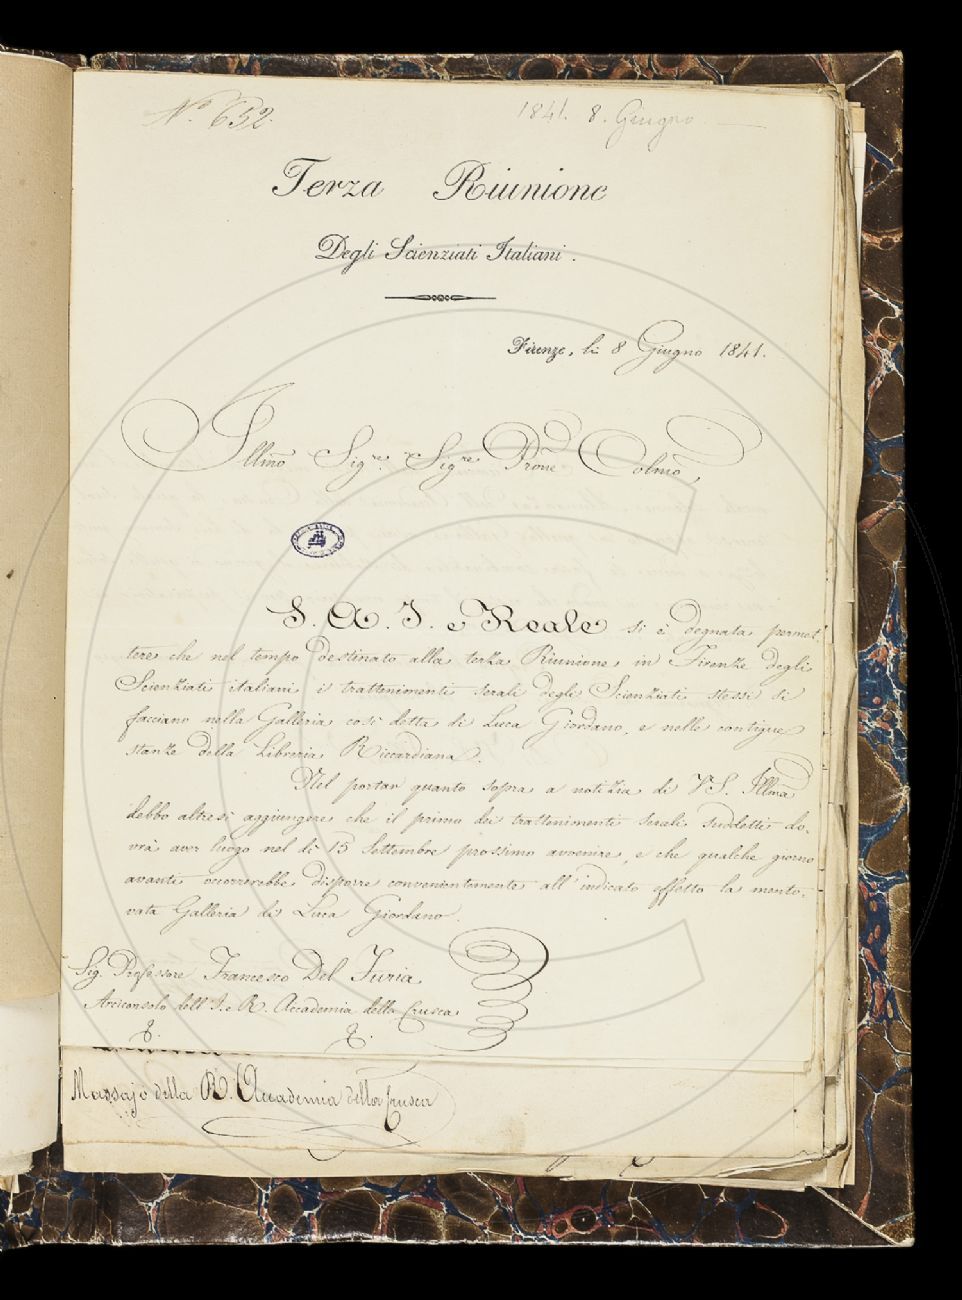 N.° 652.
1841. 8. Giugno.
Terza Riunione
Degli Scienziati Italiani.
Firenze, li 8 Giugno 1841.
Illmo Sigre Sigre Prone Colmo,
S. A. I. e Reale si è degnata permet
tere che nel tempo destinato alla terza Riunione in Firenze degli
Scienziati italiani i trattenimenti serali degli Scienziati stessi si
facciano nella Galleria così detta di Luca Giordano, e nelle contigue
stanze della Libreria Riccardiana.
Nel portar quanto sopra a notizia di V S. Illma
debbo altresì aggiungere che il primo dei trattenimenti serali suddetti do-
vrà aver luogo nel dì 15 Settembre prossimo avvenire, e che qualche giorno
avanti occorrerebbe disporre convenientemente all'indicato effetto la mento-
vata Galleria di Luca Giordano.
Sig. Professore Francesco Del Furia
Arciconsolo dell'I. e R. Accademia della Crusca
Massajo della R. Accademia della Crusca